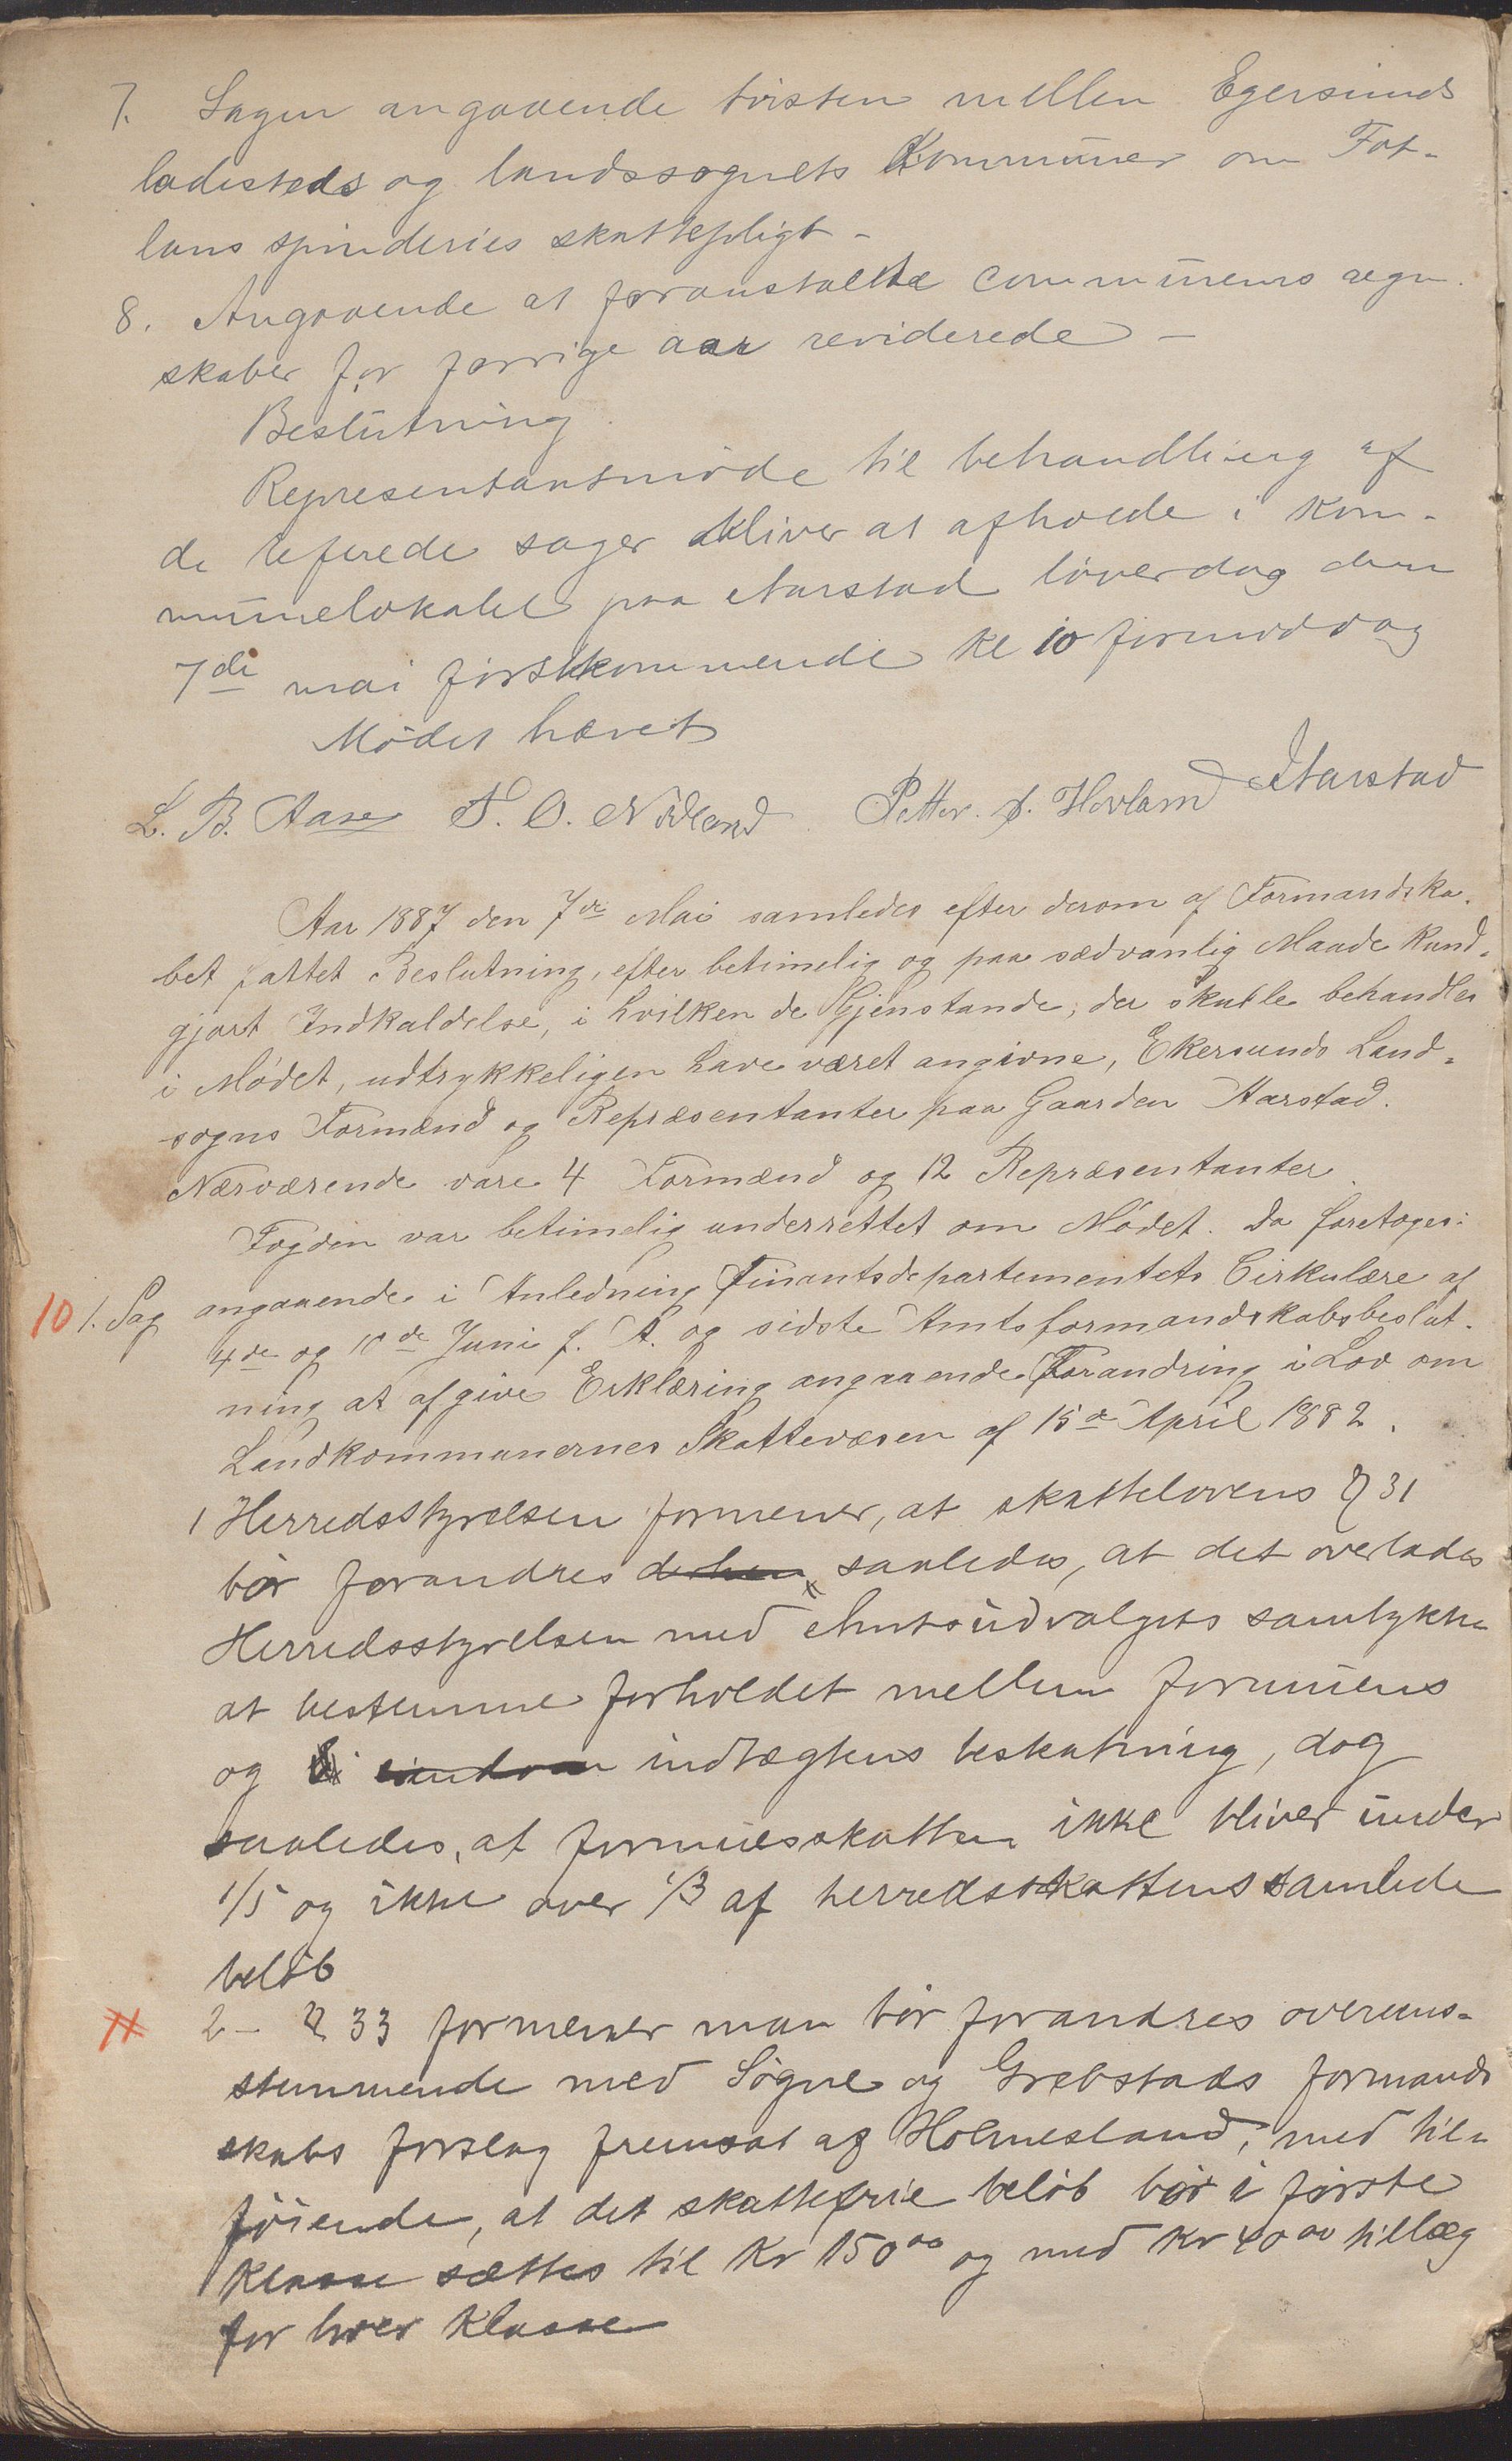 7. Sagen angaaende tvisten mellem Egersunds
ladesteds og landssognets Kommuner om Fot-
lans spinderies skattepligt -
8. Angaaende at foranstalte communens regn-
skaber for forrige aar reviderede -
Beslutning.
Representantmøde til behandling af
de refirede sager bliver at afholde i kom-
munelokalet paa Aarstad løverdag den
7de mai førstkommende kl 10 formiddag
Mødet hævet
L. B. Aase T. O. Nødland Petter. S. Hovland Aarstad
Aar 1887 den 7de Mai samledes efter derom af Formandska-
bet fattet Beslutning, efter betimelig og paa sædvanlig Maade kund-
gjort Indkaldelse, i hvilken de Gjenstande, der skulle behandles
i Mødet, udtrykkeligen have været angivne, Ekersunds Land-
sogns Formænd og Repræsentanter paa Gaarden Aarstad.
Nærværende vare 4 Formænd og 12 Repræsentanter.
Fogden var betimelig underrettet om Mødet. Da foretoges:
10 1. Sag angaaende i Anledning Finantsdepartementets Cirkulære af
4de og 10de Juni f. A. og sidste Amtsformandskabsbeslut-
ning at afgive Erklæring angaaende Forandring i Lov om
Landkommunernes Skattevæsen af 15de April 1882.
1 Herredsstyrelsen formener, at skattelovens § 31
bør forandres saaledes, at det overlades
Herredsstyrelsen med Amtsudvalgets samtykke
at bestemme forholdet mellem formuens
og indtægtens beskatning, dog
saaledes, at formuesskatten ikke bliver under
1/5 og ikke over 1/3 af herredsskattens samlede
beløb
2 - § 33 formener man bør forandres overens-
stemmende med Søgne og Grebstads formand-
skabs forslag fremsat af Holmesland, med til-
føiende, at det skattefrie beløb bør i første
Klasse sættes til Kr 150 00 og med Kr 40 00 tillæg
for hver Klasse